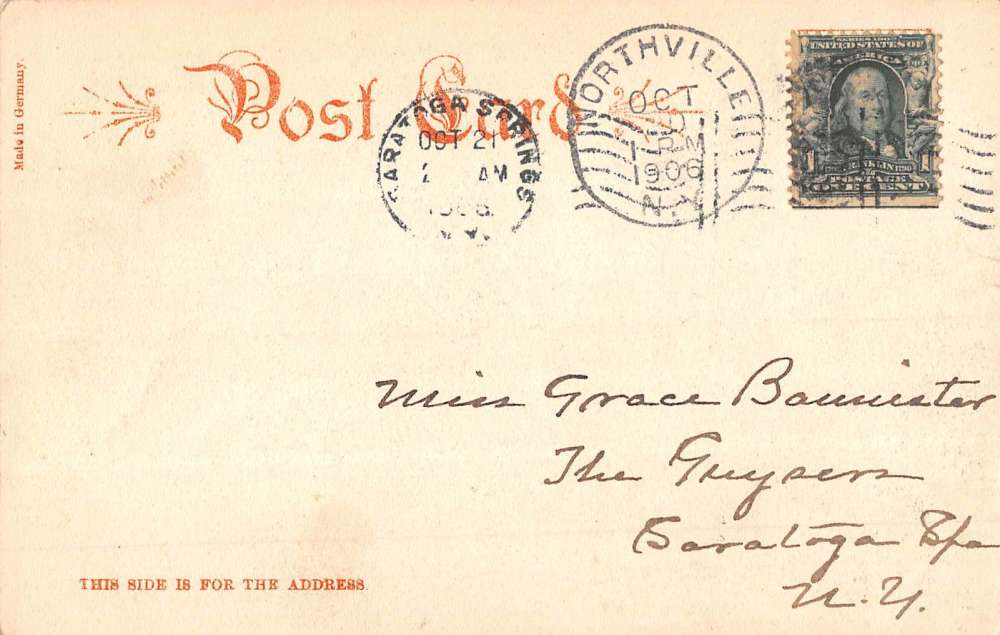 Made in Germany.
Post Card
SARATOGA SPRINGS
OCT 21
AM
1906
N.Y.
NORTHVILLE
OCT
20
1906
N.Y.
SERIES 1902
UNITED STATES OF
AMERICA
FRANKLIN
POSTAGE
ONE CENT
Miss Grace Bannister
The Geysers
Saratoga Spa
N.Y.
THIS SIDE IS FOR THE ADDRESS.